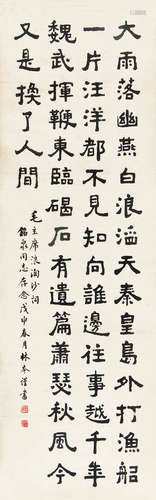 大雨落幽燕白浪滔天秦皇島外打漁船
一片汪洋都不見知誰邊往事越千年
魏武揮鞭東臨碣石有遺篇蕭瑟秋風今
又是換了人間
毛主席浪淘沙詞
銘泉同志存念戊申春月林本謹書